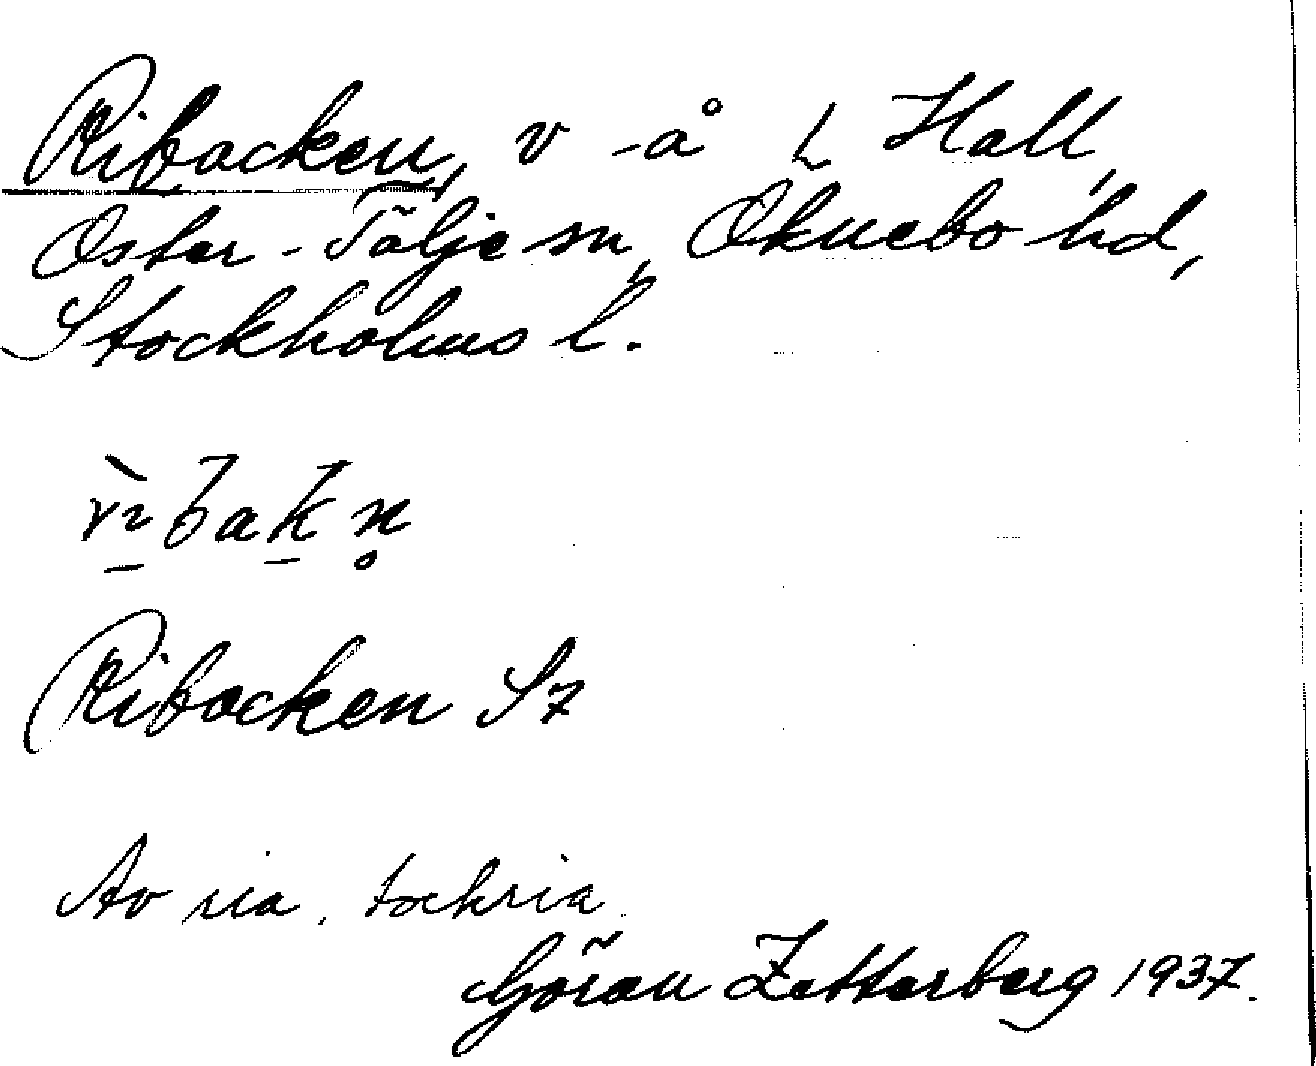 Ribacken, v -å L Hall,
Öster-Tälje sn, Öknebo hd,
Stockholms l.
rìbakn̥
Ribacken S7
Av ria, tockria.
Göran Zetterberg 1937.